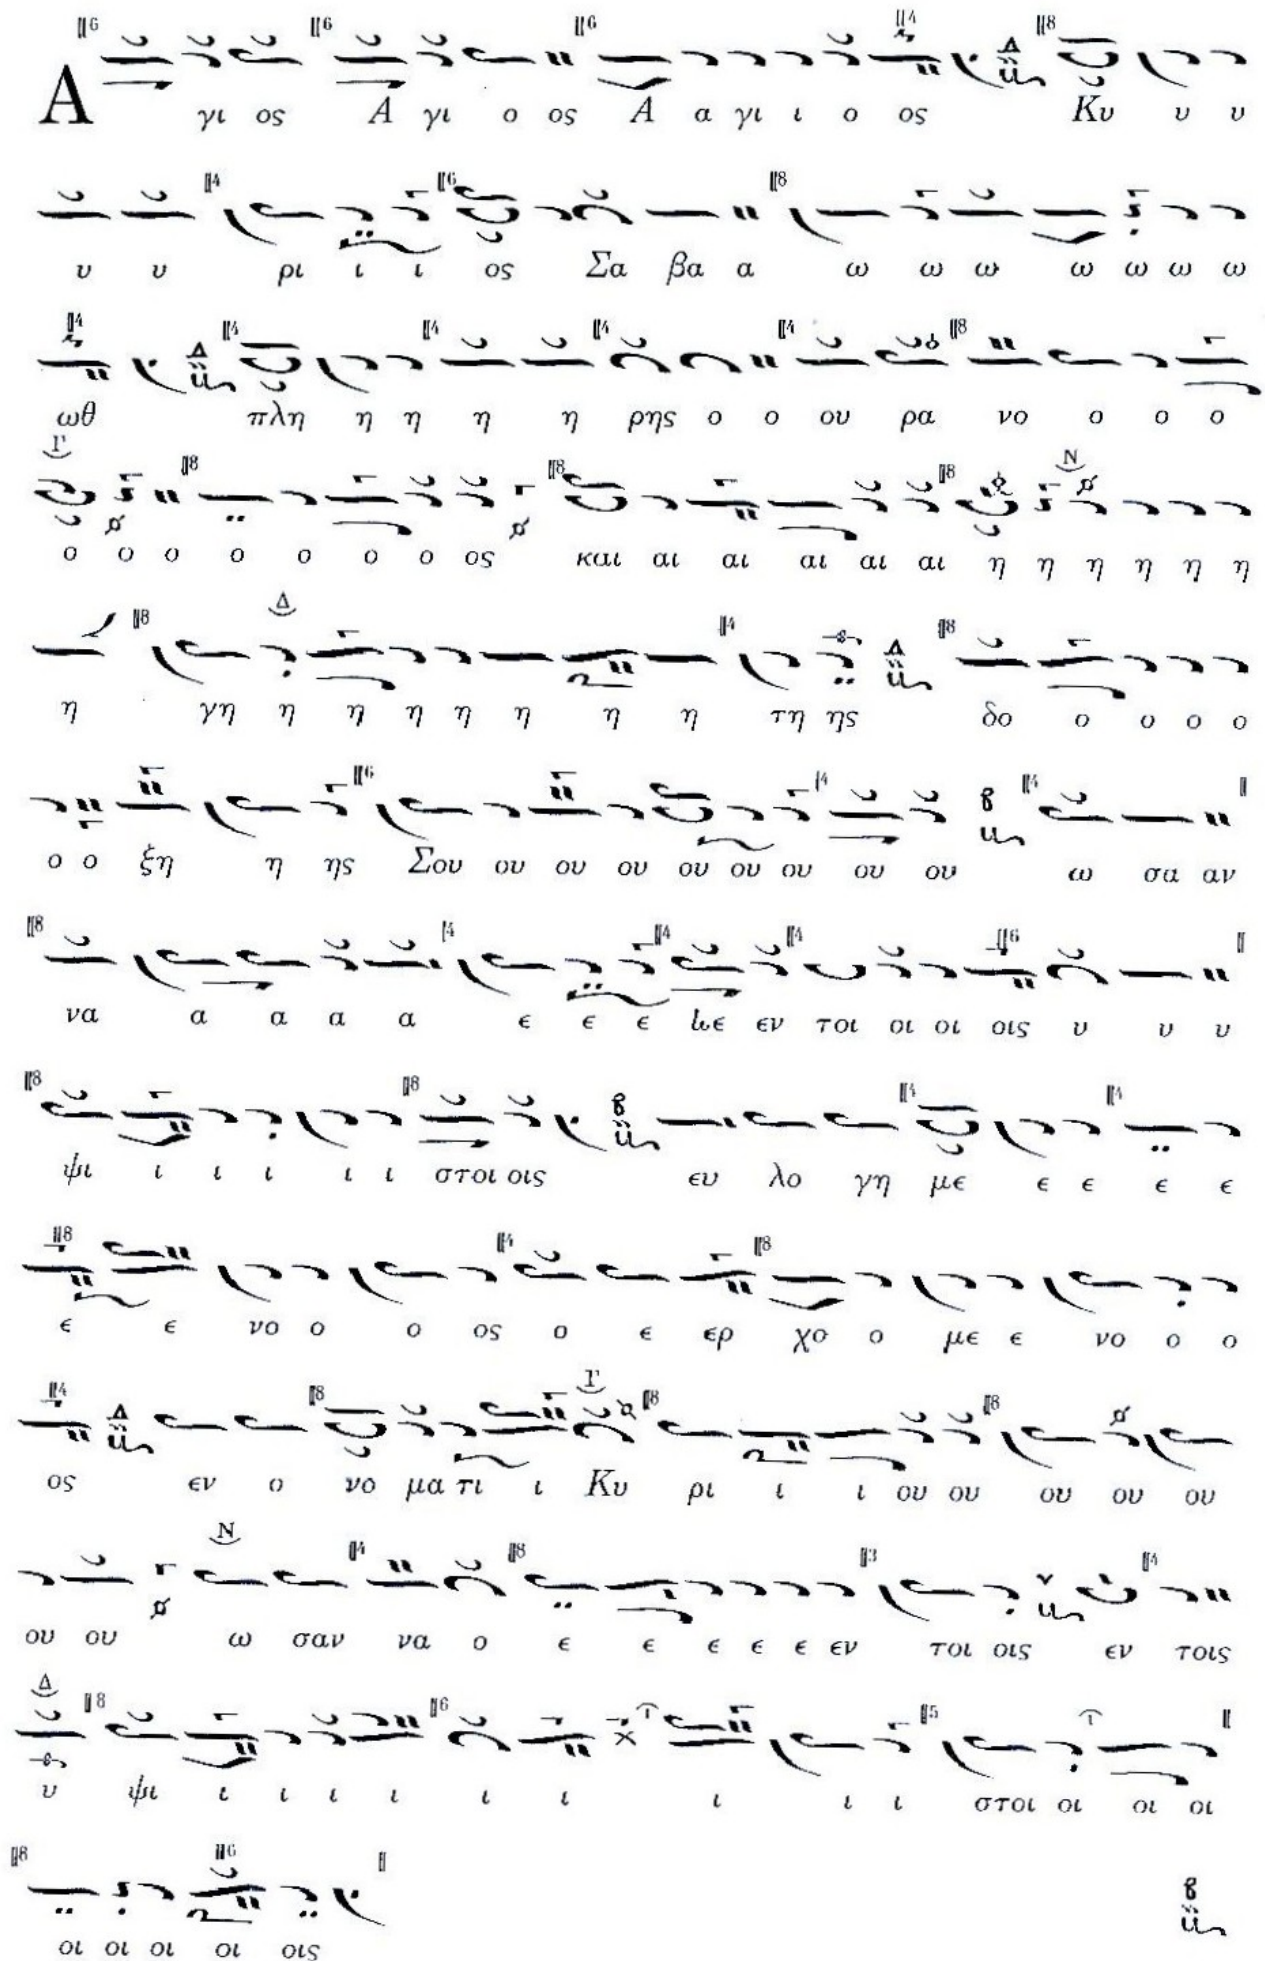 Α γι ος Α γι ο ος Α α γι ι ο ος Κυ υ υ
υ υ ρι ι ι ος Σα βα α ω ω ω ω ω ω ω
ωθ πλη η η η η ρης ο ο ου ρα νο ο ο ο
ο ο ο ο ο ο ο ος και αι αι αι αι αι η η η η η η
η γη η η η η η η η τη ης δο ο ο ο ο
ο ο ξη η ης Σου ου ου ου ου ου ου ου ου ω σα αν
να α α α α ε ε ε ε εν τοι οι οι οις υ υ υ
ψι ι ι ι ι ι στοι οις ευ λο γη με ε ε ε ε
ε ε νο ο ο ος ο ε ερ χο ο με ε νο ο ο
ος εν ο νο μα τι ι Κυ ρι ι ι ου ου ου ου ου
ου ου ω σαν να ο ε ε ε ε ε εν τοι οις εν τοις
υ ψι ι ι ι ι ι ι ι ι ι στοι οι οι οι
οι οι οι οι οις